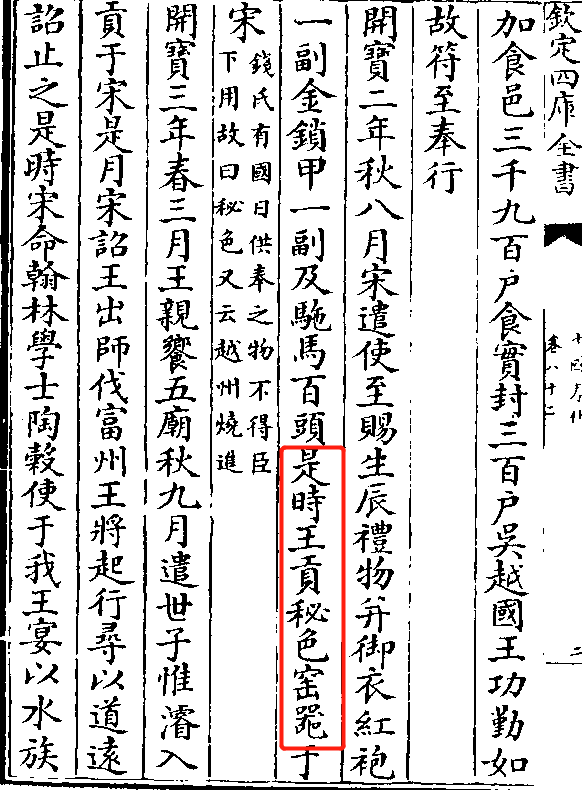 欽定四庫全書
十國春秋
卷八十二
二
加食邑三千九百户食實封三百户吳越國王功勤如
故符至奉行
開寶二年秋八月宋遣使至賜生辰禮物并御衣紅袍
一副金鎖甲一副及駞馬百頭是時王貢秘色窑器于
宋
錢氏有國日供奉之物不得臣
下用故曰秘色又云越州燒進
開寶三年春三月王親饗五廟秋九月遣世子惟濬入
貢于宋是月宋詔王出師伐富州王將起行尋以道遠
詔止之是時宋命翰林學士陶穀使于我王宴以水族